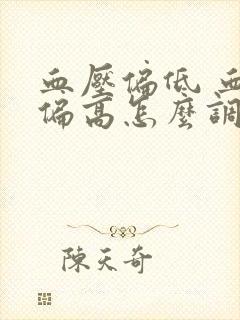 血壓偏低 血
偏高怎麼調
陳天奇